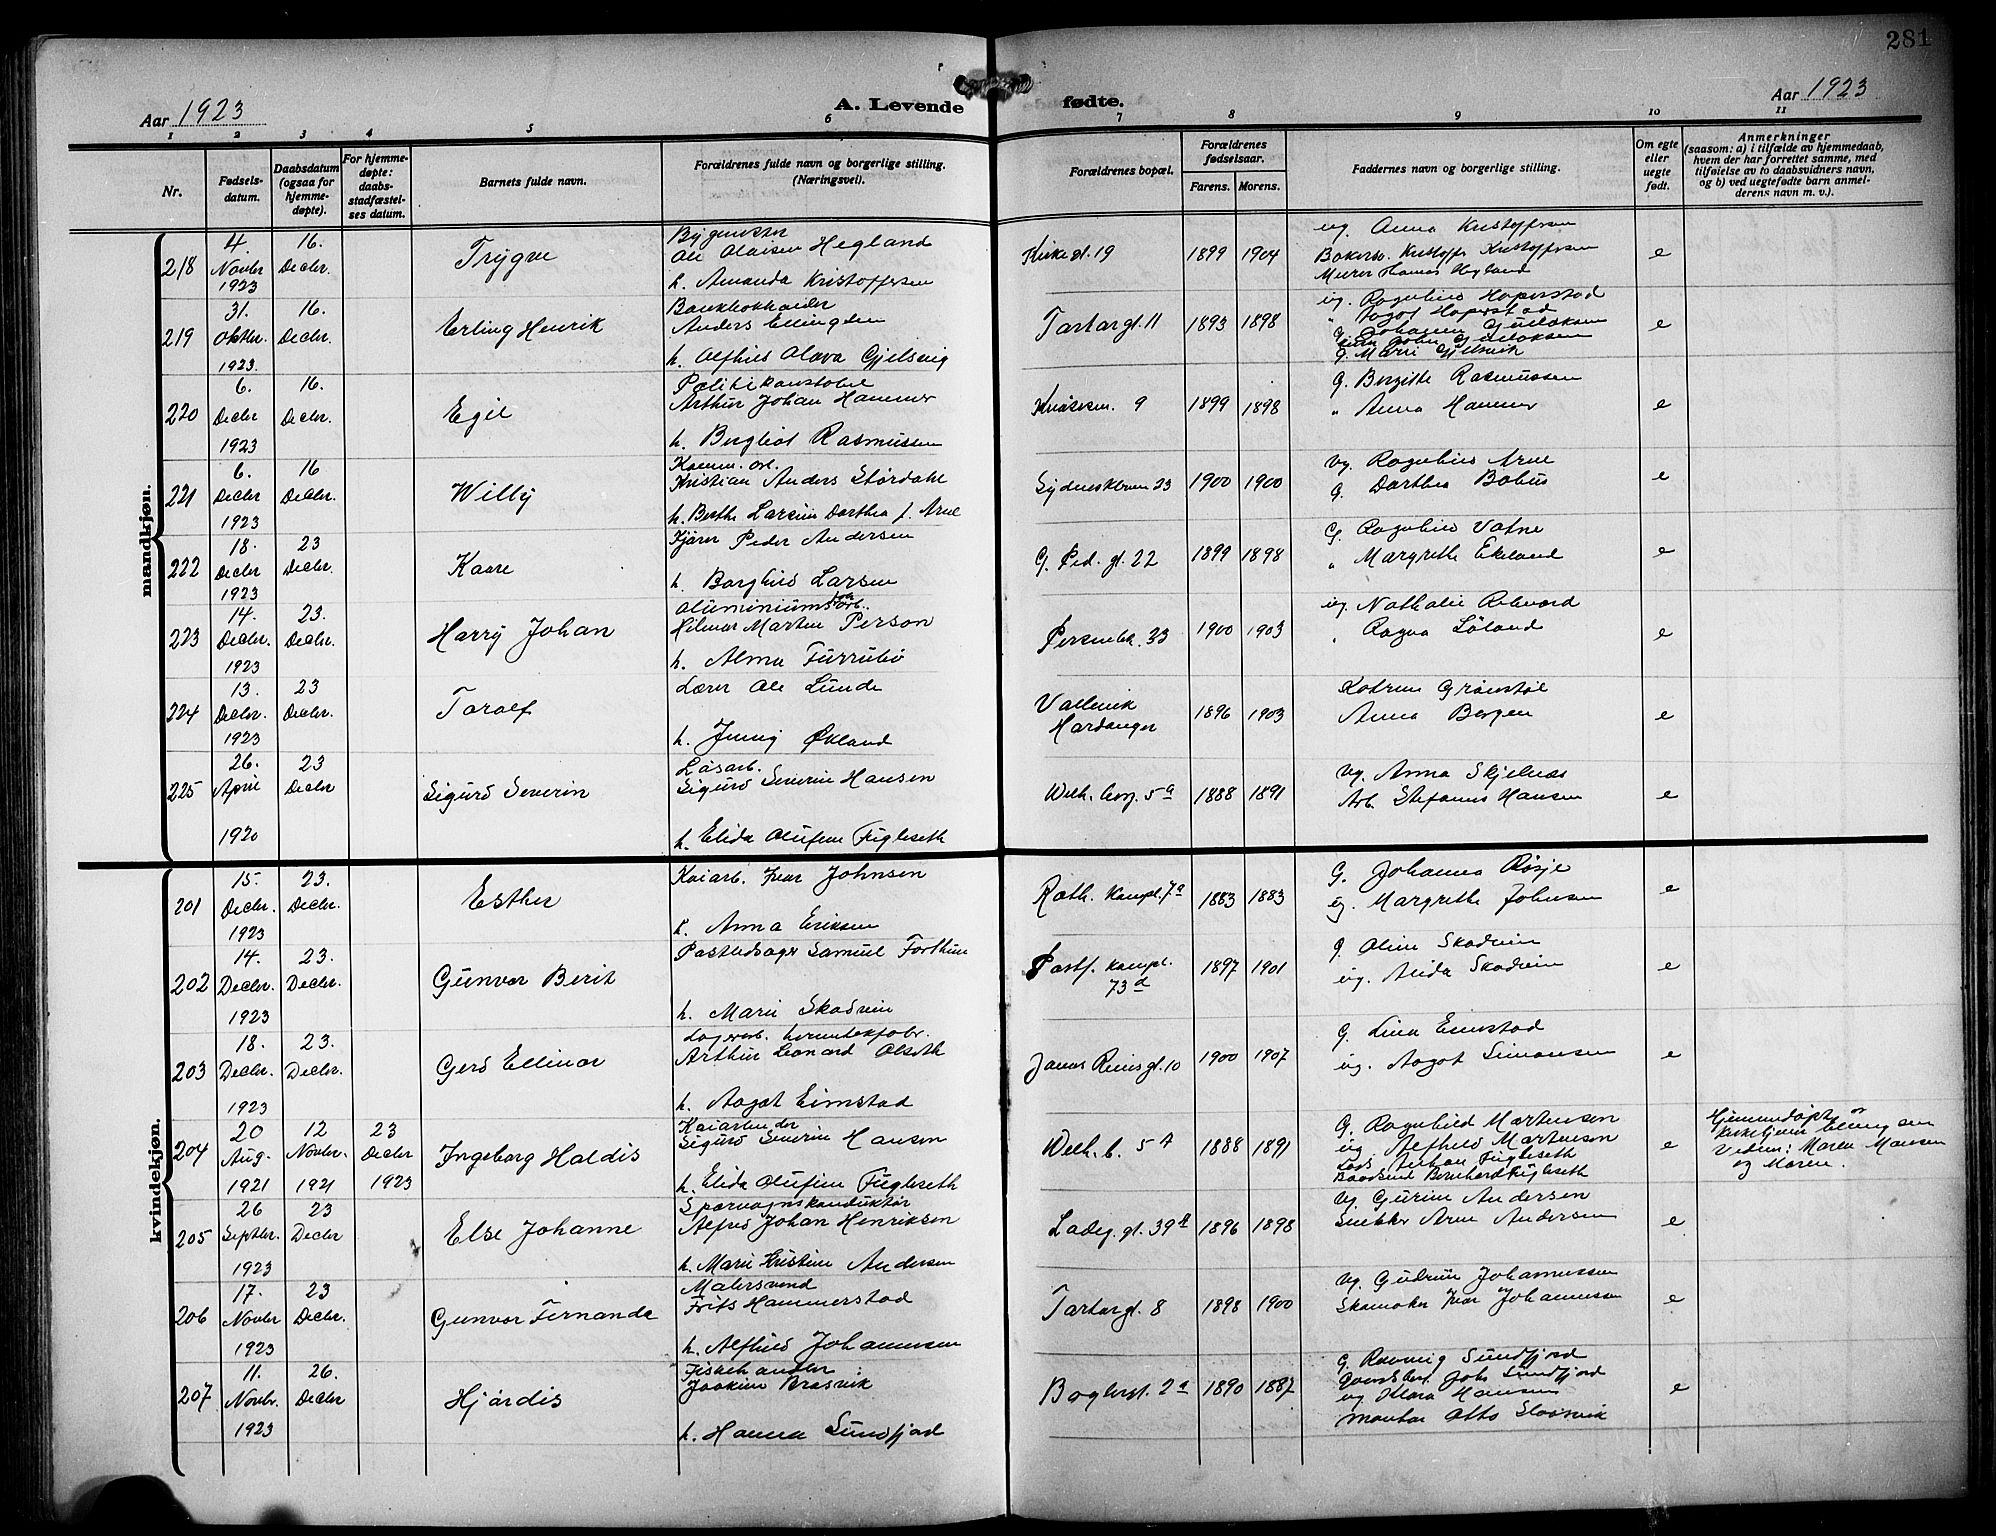 281
Aar 1923
A. Levende fødte.
Aar 1923
1 2 3 4 5 6 7 8 9 10 11
Nr.
Fødsels-
datum.
Daabsdatum
(ogsaa for
hjemme-
døpte).
For hjemme-
døpte:
daabs-
stadfæstel-
ses datum.
Barnets fulde navn.
Forældrenes fulde navn og borgerlige stilling.
(Næringsvei).
Forældrenes bopæl.
Forældrenes
fødselsaar.
Farens. Morens.
Faddernes navn og borgerlige stilling.
Om egte
eller
uegte
født.
Anmerkninger
(saasom: a) i tilfælde av hjemmedaab,
hvem der har forrettet samme, med
tilføielse av to daabsvidners navn,
og b) ved uegtefødte barn anmel-
derens navn m. v.).
mandkjøn.
218
4
Novbr
1923
16.
Decbr.
Trygve
Ole Olaisen Hegland
h. Amanda Kristoffersen
Kirkegt. 19
1899 1904
ug. Anna Kristoffersen
Kristoffer Kristoffersen
Murer Hegland
e
219
31.
Oktbr.
1923.
16.
Decbr.
Erling Henrik
Bankbokholder
Anders Ellingsen
h. Alfhild Olava Gjelsvig
Tartargt. 11
1893 1898
ug. Ragnhild Hoperstad
" Aagot Hoperstad
G. Marie Gjelsvik
e
220
6.
Decbr
1923
16.
Decbr.
Egil
Politikonstabel
Arthur Johan Hammer
h. Bergliot Rasmussen
9
1899 1898
G. Bergitte Rasmussen
" Anna Hammer
e
221
6.
Decbr
1923
16
Decbr.
Willy
Komm. arb.
Kristian Anders Størdahl
h. Berthe Larsine Dorthea f. Arne
Sydneskleven 23
1900 1900
ug. Ragnhild Arne
G. Dorthea
e
222
18.
Decbr
1923
23
Decbr.
Kaare
Kjører Peder Andersen
h. Borghild Larsen
G. Ped. gt. 22
1899 1898
G. Ragnhild Vatne
" Margrethe Ekeland
e
223
14.
Decbr.
1923
23.
Decbr.
Harry Johan
Hilmar Martin Person
h. Alma Furrubø
33
1900 1903
ug. Nathalie
" Ragna Løland
e
224
13.
Decbr.
1923
23
Decbr.
Toralf
Lærer Ole Lunde
h. Jenny Økland
Hardanger
1896 1903
Anna Bergen
e
225
26.
April
1920
23
Decbr
Sigurd Severin
Løsarb.
Sigurd Severin Hansen
h. Elida Olufine Fugleseth
Welh. berg. 5a
1888 1891
ug. Anna Skjelnæs
Arb. Stefanus Hansen
e
kvindekjøn.
201
15.
Decbr.
1923
23.
Decbr.
Esther
Kaiarb. Ivar Johnsen
h. Anna Eriksen
Roth. kampl. 7a
1883 1883
G. Johanna Røsje
ug. Margrethe Johnsen
e
202
14.
Decbr.
1923
23.
Decbr.
Gunvor Berit
Postledsager Samuel Forthun
h. Marie Skadvin
Postf. kampl.
73d
1897 1901
g. Oline Skadvin
ug. Alida Skadvin
e
203
18.
Decbr.
1923
23.
Decbr.
Gerd Ellinor
Lagerarb. hermetikfabr.
Arthur Leonard Olseth
h. Aagot Eimstad
Jonas Reins gt. 10
1900 1907
G. Lina Eimstad
ug. Aagot Simonsen
e
204
20
Aug.
1921
12
Novbr.
1921
23
Decbr
1923
Ingeborg Haldis
Kaiarbeider
Sigurd Severin Hansen
h. Elida Olufine Fugleseth
Welh. b. 5A
1888 1891
G. Ragnhild Martinsen
ug Alfhild Martinsen
Lods. Anton Fugleseth
Baadsmd Bernhard Fugleseth
e
Hjemmedøpt av
Vidner: Maren Hansen
og Moren.
205
26
Septbr.
1923
23
Decbr
Else Johanne
Sporvognskonduktør
Alfred Johan Henriksen
h. Marie Kristine Andersen
Ladeg. gt. 39A
1896 1898
ug. Gurine Andersen
Snekker Arne Andersen
e
206
17.
Novbr
1923
23
Decbr.
Gunvor Fernanda
Malersvend
Frits Hammerstad
h. Alfhild Johannesen
Tartargt. 8
1898 1900
ug. Gudrun Johannessen
Skomaker Ivar Johannessen
e
207
11.
Novbr.
1923
26.
Decbr
Hjørdis
Fiskehandler
Joakim Brasvik
h. Hanna Sundfjord
2a
1890 1887
G. Ronnvig Sundfjord
Johs Sundfjord
ug Klara Hansen
Montør Otto
e